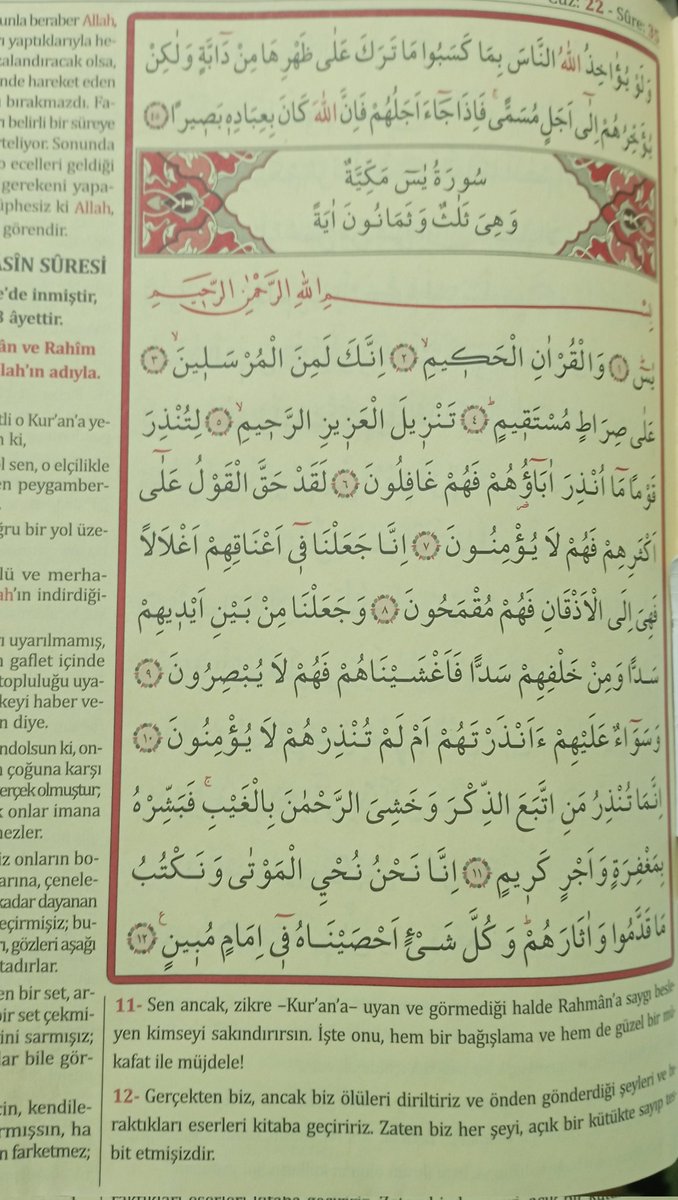 Cüz: 22 - Sûre: 35
وَلَوْ يُؤَاخِذُ اللهُ النَّاسَ بِمَا كَسَبُوا مَا تَرَكَ عَلٰى ظَهْرِهَا مِنْ دَٓابَّةٍ وَلٰكِنْ
يُؤَخِّرُهُمْ اِلٰٓى اَجَلٍ مُسَمًّىۚ فَاِذَا جَٓاءَ اَجَلُهُمْ فَاِنَّ اللهَ كَانَ بِعِبَادِه۪ بَص۪يرًا ﴿٤٥﴾
سُورَةُ يٰسٓ مَكِّيَّةٌ
وَهِىَ ثَلٰثٌ وَثَمَانُونَ اٰيَةً
بِسْمِ اللهِ الرَّحْمٰنِ الرَّح۪يمِ
يٰسٓ ﴿١﴾ وَالْقُرْاٰنِ الْحَك۪يمِۙ ﴿٢﴾ اِنَّكَ لَمِنَ الْمُرْسَل۪ينَۙ ﴿٣﴾
عَلٰى صِرَاطٍ مُسْتَق۪يمٍۜ ﴿٤﴾ تَنْز۪يلَ الْعَز۪يزِ الرَّح۪يمِۙ ﴿٥﴾ لِتُنْذِرَ
قَوْمًا مَٓا اُنْذِرَ اٰبَٓاؤُ۬هُمْ فَهُمْ غَافِلُونَ ﴿٦﴾ لَقَدْ حَقَّ الْقَوْلُ عَلٰٓى
اَكْثَرِهِمْ فَهُمْ لَا يُؤْمِنُونَ ﴿٧﴾ اِنَّا جَعَلْنَا ف۪ٓى اَعْنَاقِهِمْ اَغْلَالًا
فَهِىَ اِلَى الْاَذْقَانِ فَهُمْ مُقْمَحُونَ ﴿٨﴾ وَجَعَلْنَا مِنْ بَيْنِ اَيْد۪يهِمْ
سَدًّا وَمِنْ خَلْفِهِمْ سَدًّا فَاَغْشَيْنَاهُمْ فَهُمْ لَا يُبْصِرُونَ ﴿٩﴾
وَسَوَٓاءٌ عَلَيْهِمْ ءَاَنْذَرْتَهُمْ اَمْ لَمْ تُنْذِرْهُمْ لَا يُؤْمِنُونَ ﴿١٠﴾
اِنَّمَا تُنْذِرُ مَنِ اتَّبَعَ الذِّكْرَ وَخَشِىَ الرَّحْمٰنَ بِالْغَيْبِۚ فَبَشِّرْهُ
بِمَغْفِرَةٍ وَاَجْرٍ كَر۪يمٍ ﴿١١﴾ اِنَّا نَحْنُ نُحْيِ الْمَوْتٰى وَنَكْتُبُ
مَا قَدَّمُوا وَاٰثَارَهُمْۜ وَكُلَّ شَىْءٍ اَحْصَيْنَاهُ ف۪ٓى اِمَامٍ مُب۪ينٍ۟ ﴿١٢﴾
unla beraber Allah,
yaptıklarıyla he-
alandıracak olsa,
nde hareket eden
bırakmazdı. Fa-
belirli bir süreye
rteliyor. Sonunda
ecelleri geldiği
gerekeni yapa-
üphesiz ki Allah,
görendir.
ASÎN SÛRESİ
e'de inmiştir,
3 âyettir.
ân ve Rahîm
lah'ın adıyla.
tli o Kur'an'a ye-
n ki,
l sen, o elçilikle
en peygamber-
ğru bir yol üze-
lü ve merha-
ah'ın indirdiği-
ı uyarılmamış,
n gaflet içinde
topluluğu uya-
keyi haber ve-
n diye.
ndolsun ki, on-
n çoğuna karşı
erçek olmuştur;
k onlar imana
nezler.
iz onların bo-
arına, çenele-
kadar dayanan
eçirmişiz; bu-
ı, gözleri aşağı
tadırlar.
en bir set, ar-
bir set çekmi-
ini sarmışız;
lar bile gör-
çin, kendile-
rmışsın, ha
n farketmez;
11- Sen ancak, zikre –Kur'an'a– uyan ve görmediği halde Rahmân'a saygı besle-
yen kimseyi sakındırırsın. İşte onu, hem bir bağışlama ve hem de güzel bir mü-
kafat ile müjdele!
12- Gerçekten biz, ancak biz ölüleri diriltiriz ve önden gönderdiği şeyleri ve bı-
raktıkları eserleri kitaba geçiririz. Zaten biz her şeyi, açık bir kütükte sayıp tes-
bit etmişizdir.